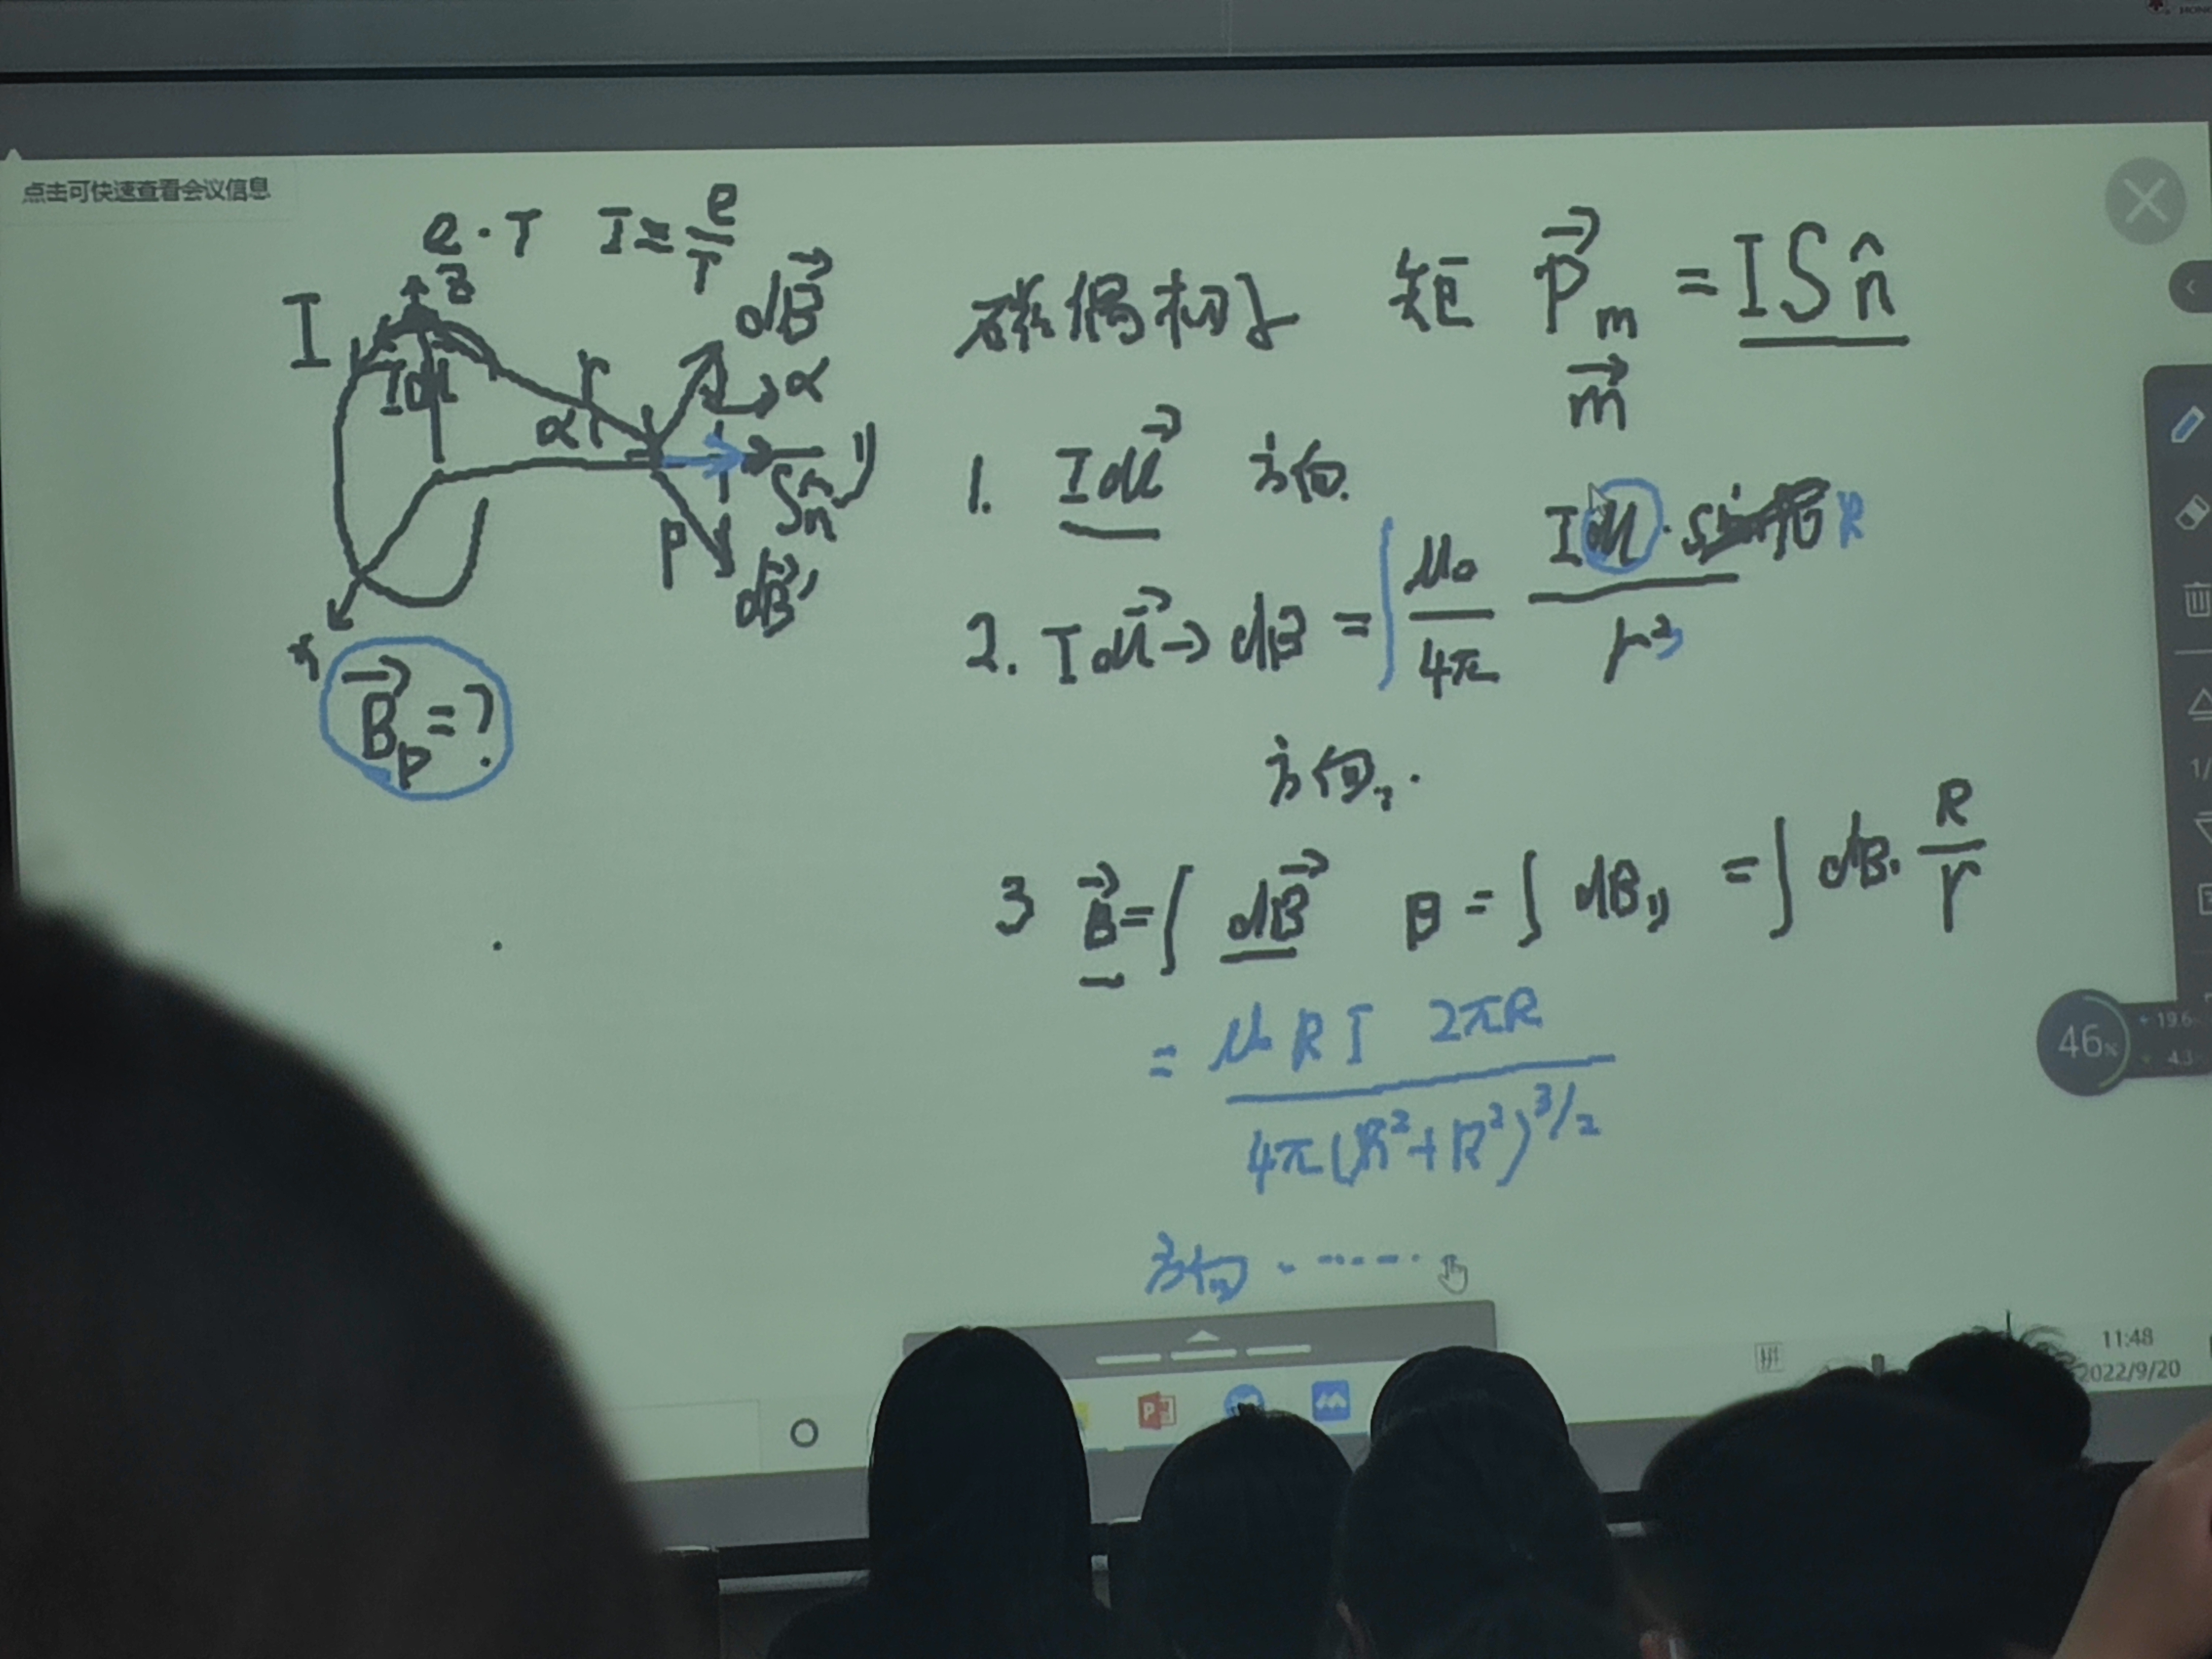 点击可快速查看会议信息
e · T I = e/T
z
I
Idl
r
α
dB⃗
α
//
Sn̂
P
dB⃗'
x
B⃗p = ?
磁偶极子 矩 P⃗m = ISn̂
m⃗
1. Idl⃗ 方向.
2. Idl⃗ → dB = ∫ μ₀/4π Idl · R / r³
方向.
3 B⃗ = ∫ dB⃗ B = ∫ dB// = ∫ dB · R/r
= μ₀ R I 2πR / 4π(R²+R²)^3/2
方向 · ······
46%
+ 19.6
4.3
1/
11:48
2022/9/20